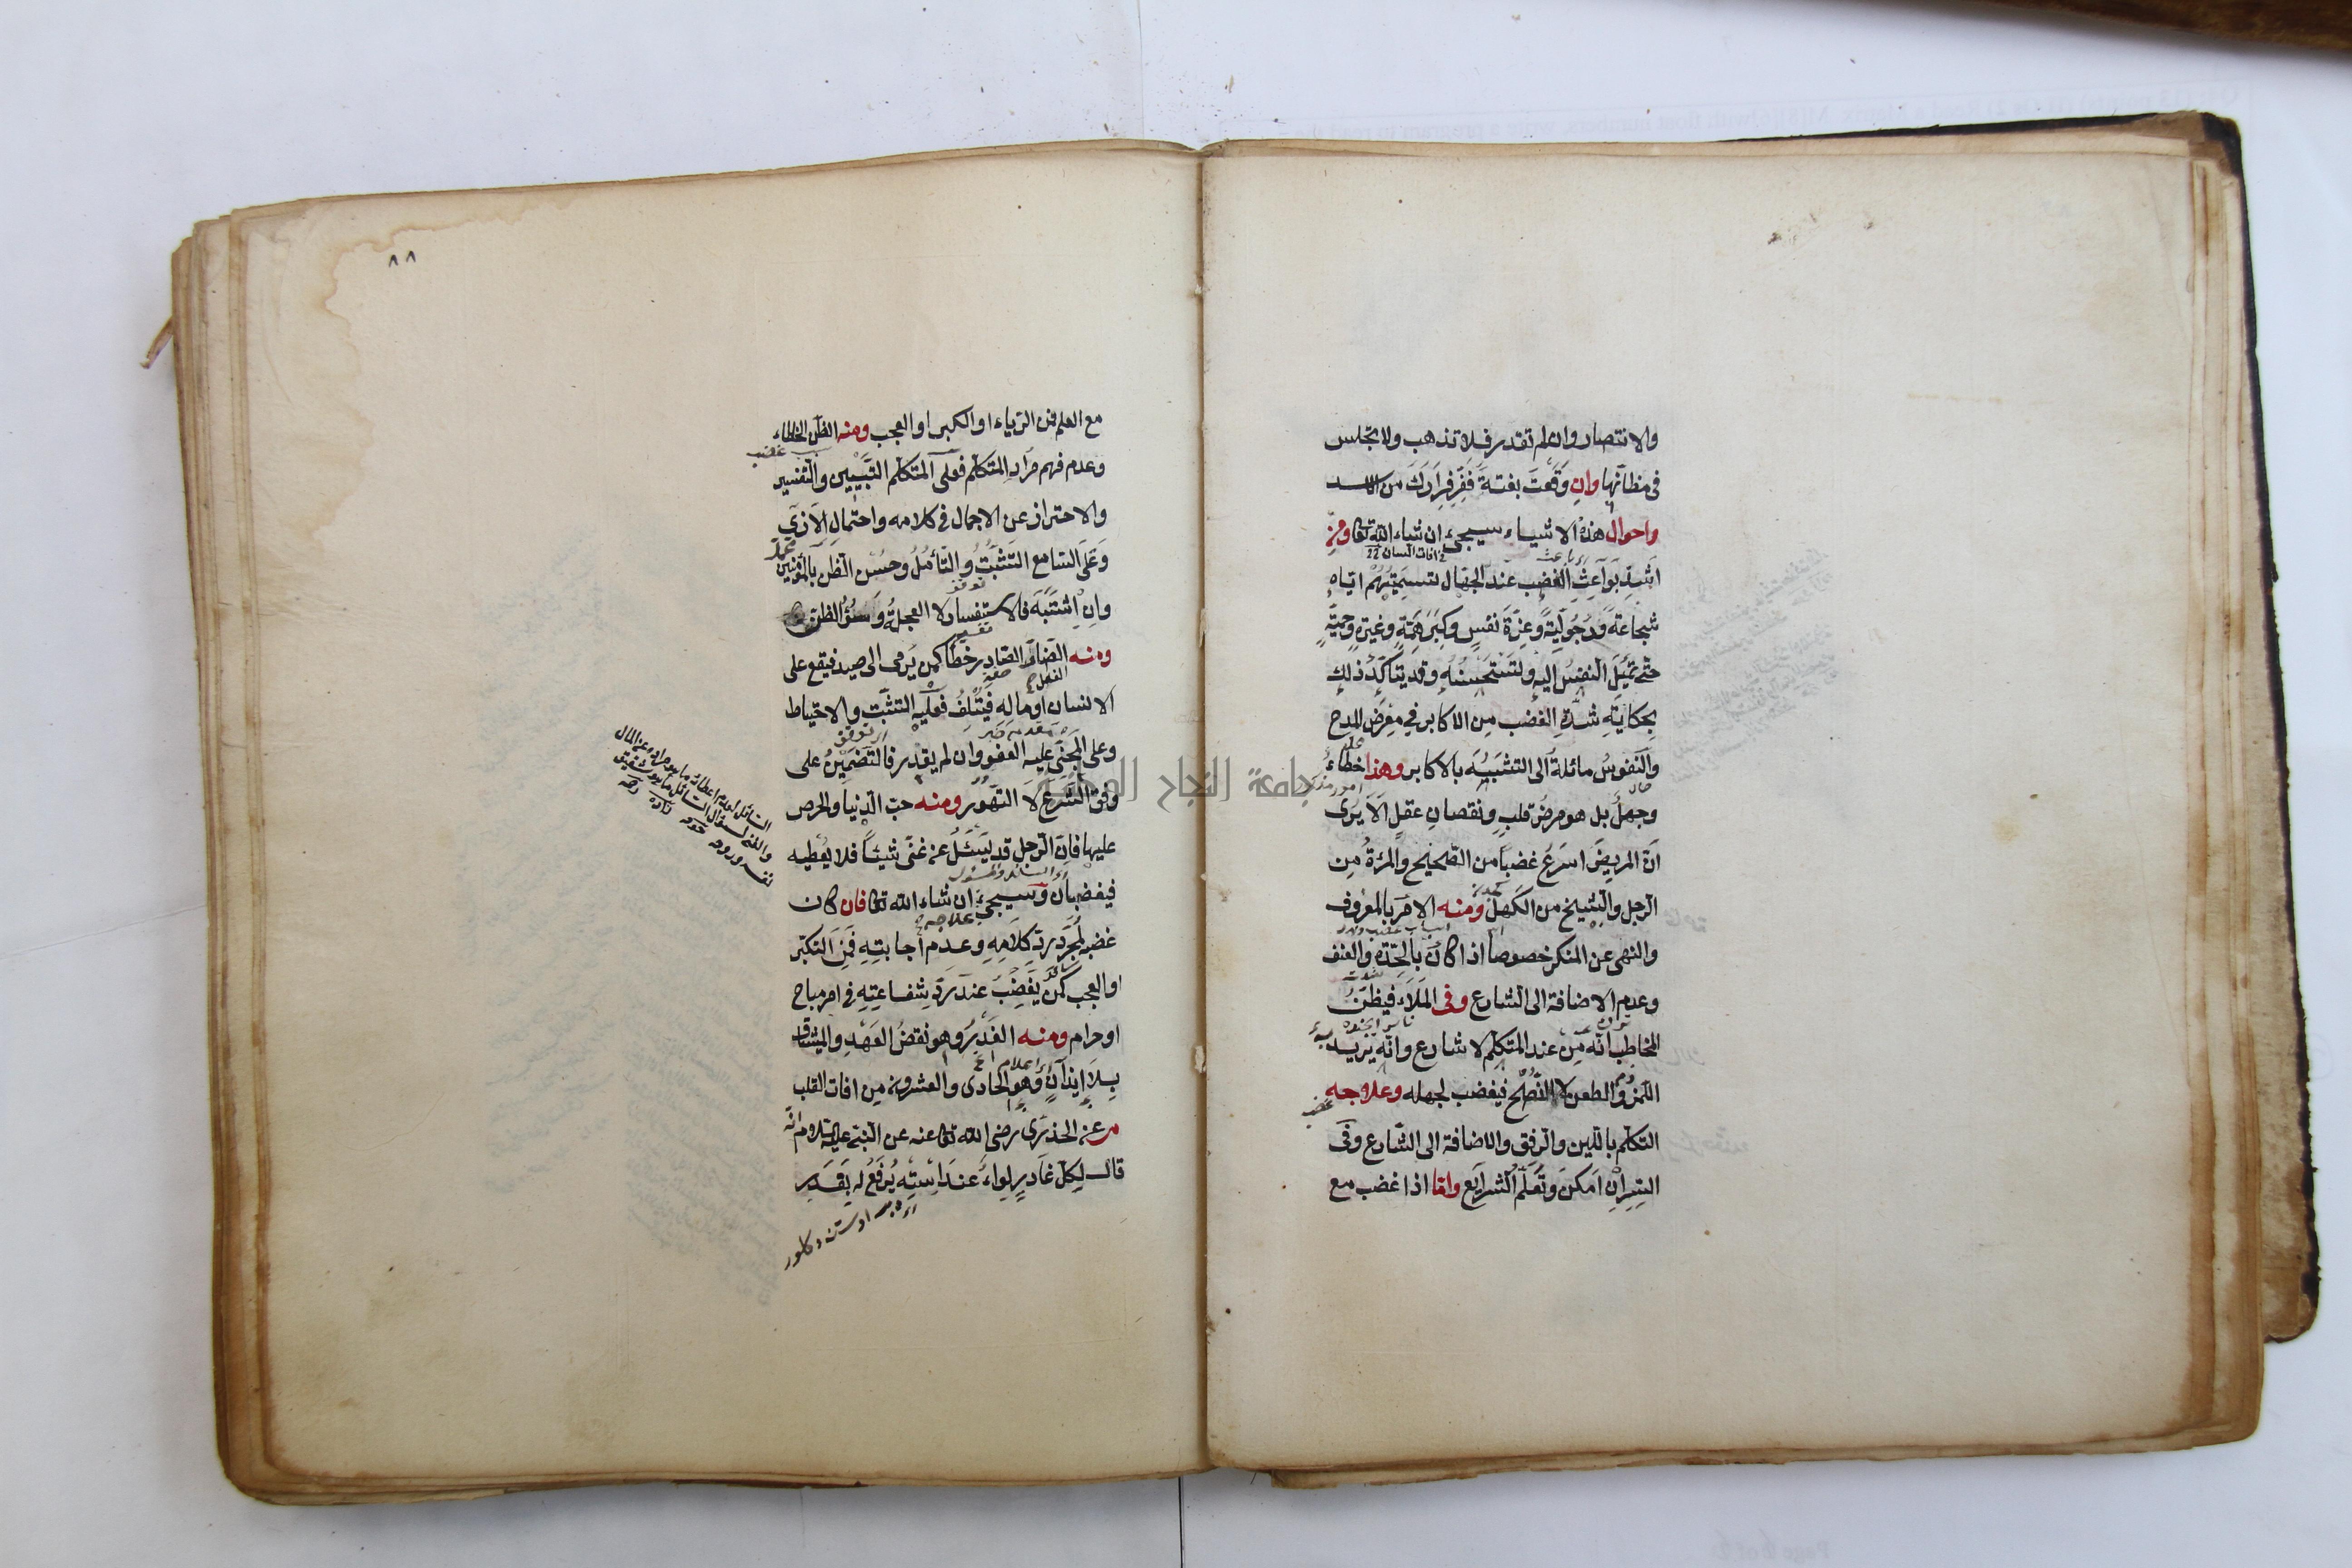 والانتصار وان لم تقدر فلا تذهب ولا تجلس
فى مظانها وان وقعت بغتة ففر فرارك من الاسد
واحوال هذه الاشياء سيجىء ان شاء الله تعا ومن
اشد بواعث الغضب عند الجهال لتسميتهم اياه
شجاعة ورجولية وعزة نفس وكبر همة وغيرة وحمية
حتى تميل النفس اليه ولتستحسنه وقد يتأكد ذلك
بحكاية شدة الغضب من الاكابر في معرض المدح
والنفوس مائلة الى التشبيه بالاكابر وهذا خطاء
وجهل بل هو مرض قلب ونقصان عقل الا يرى
ان المريض اسرع غضبا من الصحيح والمرءة من
الرجل والشيخ من الكهل ومنه الامر بالمعروف
والنهى عن المنكر خصوصا اذا كان بالحدة والعنف
وعدم الاضافة الى الشارع وفى الملاء فيظن
المخاطب انه من عند المتكلم لا شارع وانه يريد
اللمز والطعن لا النصح فيغضب لجهله وعلاجه
التكلم باللين والرفق والاضافة الى الشارع وفى
السر ان امكن وتعلم الشرايع واما اذا غضب مع
٨٨
مع العلم فمن الرياء او الكبر او العجب ومنه الظن الخطاء
وعدم فهم مراد المتكلم فعلى المتكلم التبيين والتفسير
والاحتراز عن الاجمال فى كلامه واحتمال الاذى
وعلى السامع التثبت والتأمل وحسن الظن بالمؤمنين
وان اشتبه فالاستفسار لا العجلة وسوء الظن
ومنه الضار الصادر خطا كمن يرمى الى صيد فيقع على
الانسان او ماله فيتلف فعليه التثبت والاحتياط
وعلى المجنى عليه العفو وان لم يقدر فالتضمين على
وفق الشرع لا التهور ومنه حب الدنيا والحرص
عليها فان الرجل قد يسئل عن غنى شيئا فلا يعطيه
فيغضبان وسيجىء ان شاء الله تعا فان كان
غضبه لمجرد رد كلامه وعدم اجابته فمن التكبر
او العجب كمن يغضب عند رد شفاعته فى امر مباح
او حرام ومنه الغدر وهو نقض العهد والميثاق
بلا ايذان وهو الحادى والعشرون من افات القلب
م عن الخدرى رضى الله تعا عنه عن النبى عليه السلام انه
قال لكل غادر لواء عند استه يرفع له بقدر
جامعة النجاح الوطنية